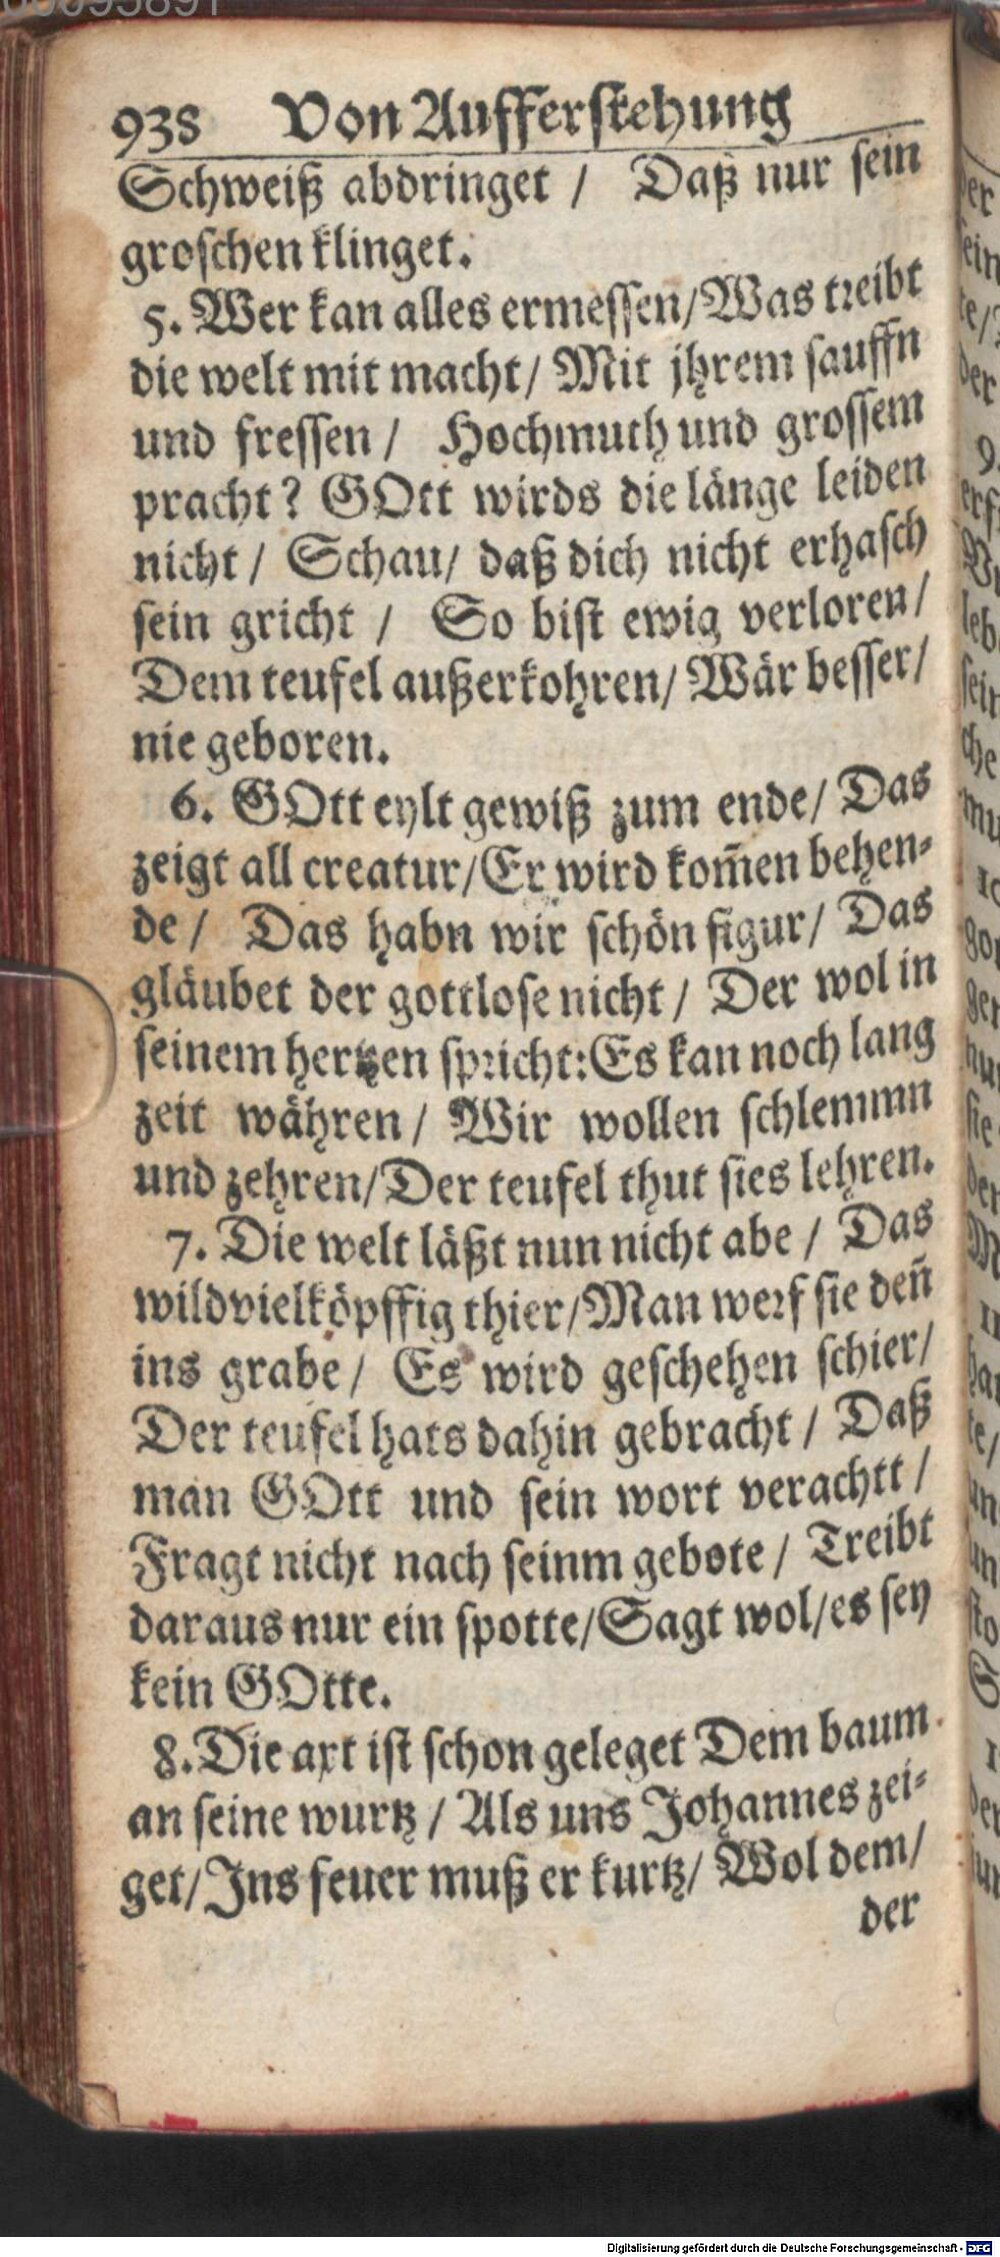 938 Von Aufferstehung
Schweiß abdringet / Daß nur sein
groschen klinget.
5. Wer kan alles ermessen/Was treibt
die welt mit macht/ Mit jhrem sauffn
und fressen / Hochmuth und grossem
pracht? GOtt wirds die länge leiden
nicht / Schau/ daß dich nicht erhasch
sein gricht / So bist ewig verloren/
Dem teufel außerkohren/ Wär besser/
nie geboren.
6. GOtt eylt gewiß zum ende/ Das
zeigt all creatur/Er wird kom̄en behen-
de / Das habn wir schön figur/ Das
gläubet der gottlose nicht / Der wol in
seinem hertzen spricht:Es kan noch lang
zeit währen / Wir wollen schlemmn
und zehren/Der teufel thut sies lehren.
7. Die welt läßt nun nicht abe / Das
wildvielköpffig thier/Man werf sie den̄
ins grabe/ Es wird geschehen schier/
Der teufel hats dahin gebracht / Daß
man GOtt und sein wort verachtt /
Fragt nicht nach seinm gebote / Treibt
daraus nur ein spotte/Sagt wol/es sey
kein GOtte.
8. Die axt ist schon geleget Dem baum
an seine wurtz / Als uns Johannes zei-
get/Ins feuer muß er kurtz/ Wol dem/
der
Digitalisierung gefördert durch die Deutsche Forschungsgemeinschaft - DFG